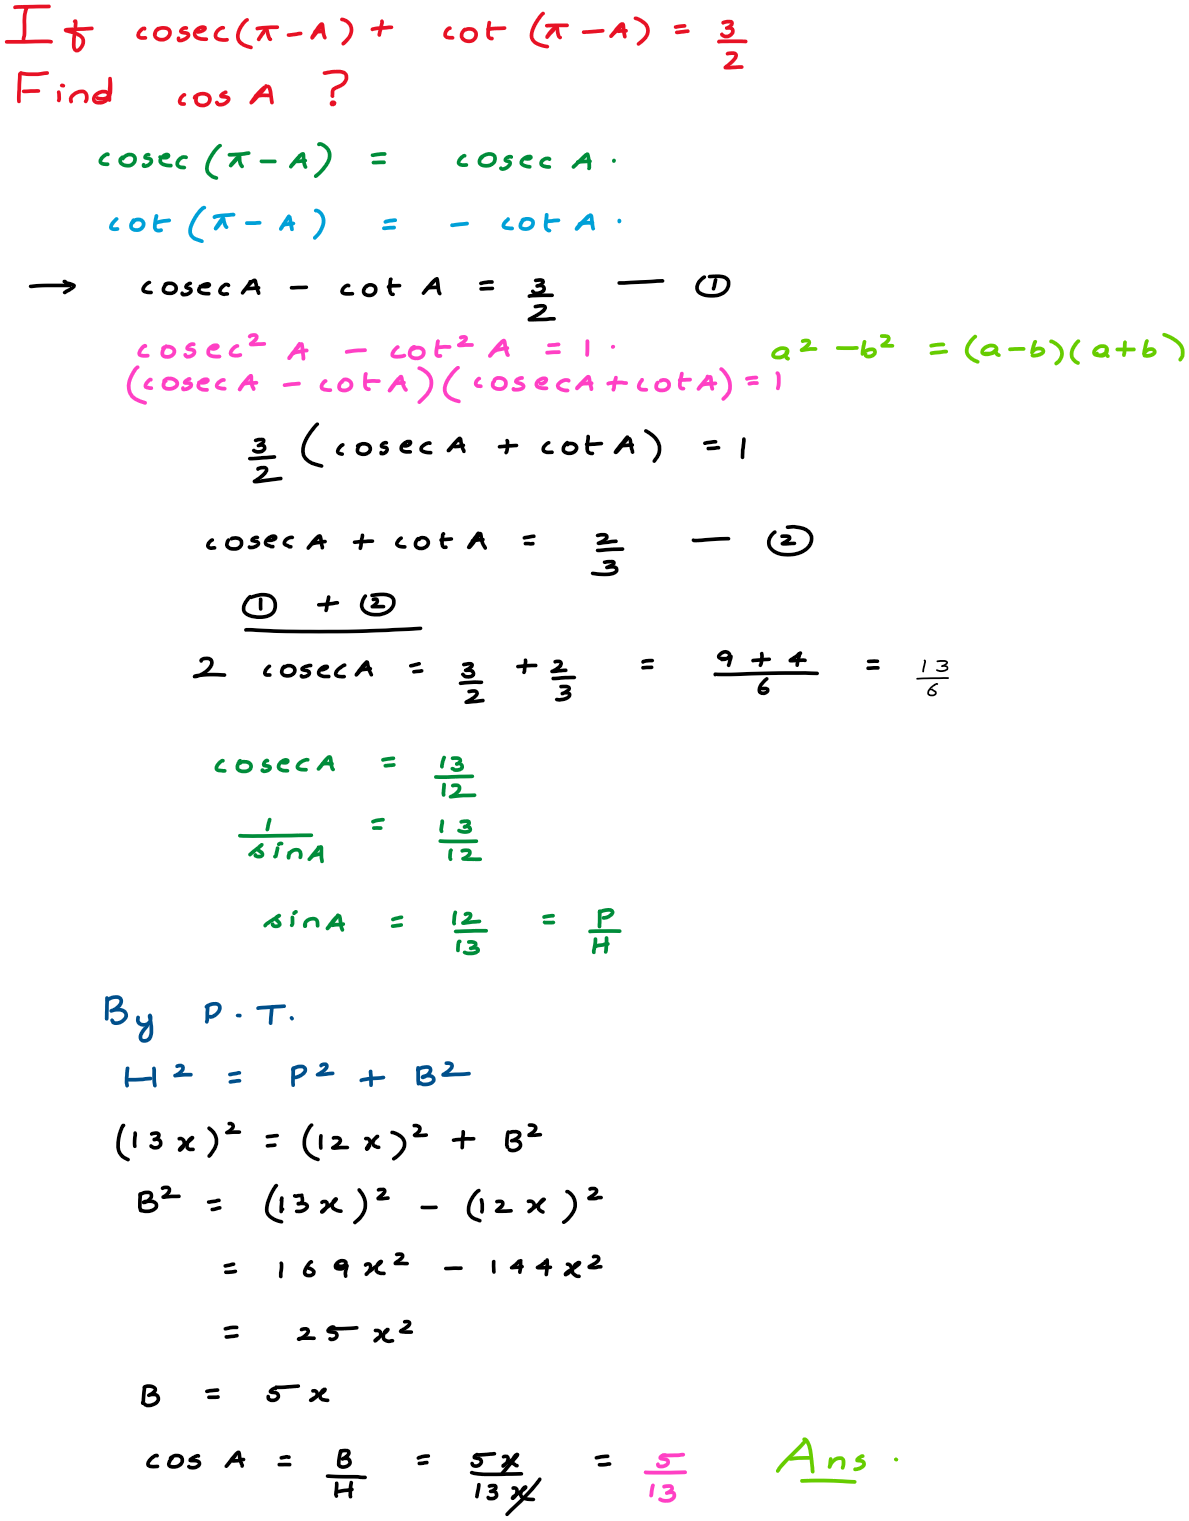 If cosec(π-A) + cot (π-A) = 3/2
Find cos A ?
cosec (π-A) = cosec A.
cot (π- A) = - cot A.
→ cosecA - cot A = 3/2 — ①
cosec² A - cot² A = 1. a² -b² = (a-b)(a+b)
(cosecA - cotA)(cosecA+cotA) = 1
3/2 (cosecA + cotA) = 1
cosecA + cotA = 2/3 — ②
① + ②
2 cosecA = 3/2 + 2/3 = 9+4/6 = 13/6
cosecA = 13/12
1/sinA = 13/12
sinA = 12/13 = P/H
By P.T.
H² = P² + B²
(13x)² = (12x)² + B²
B² = (13x)² - (12x)²
= 169x² - 144x²
= 25x²
B = 5x
cos A = B/H = 5x/13x = 5/13 Ans.